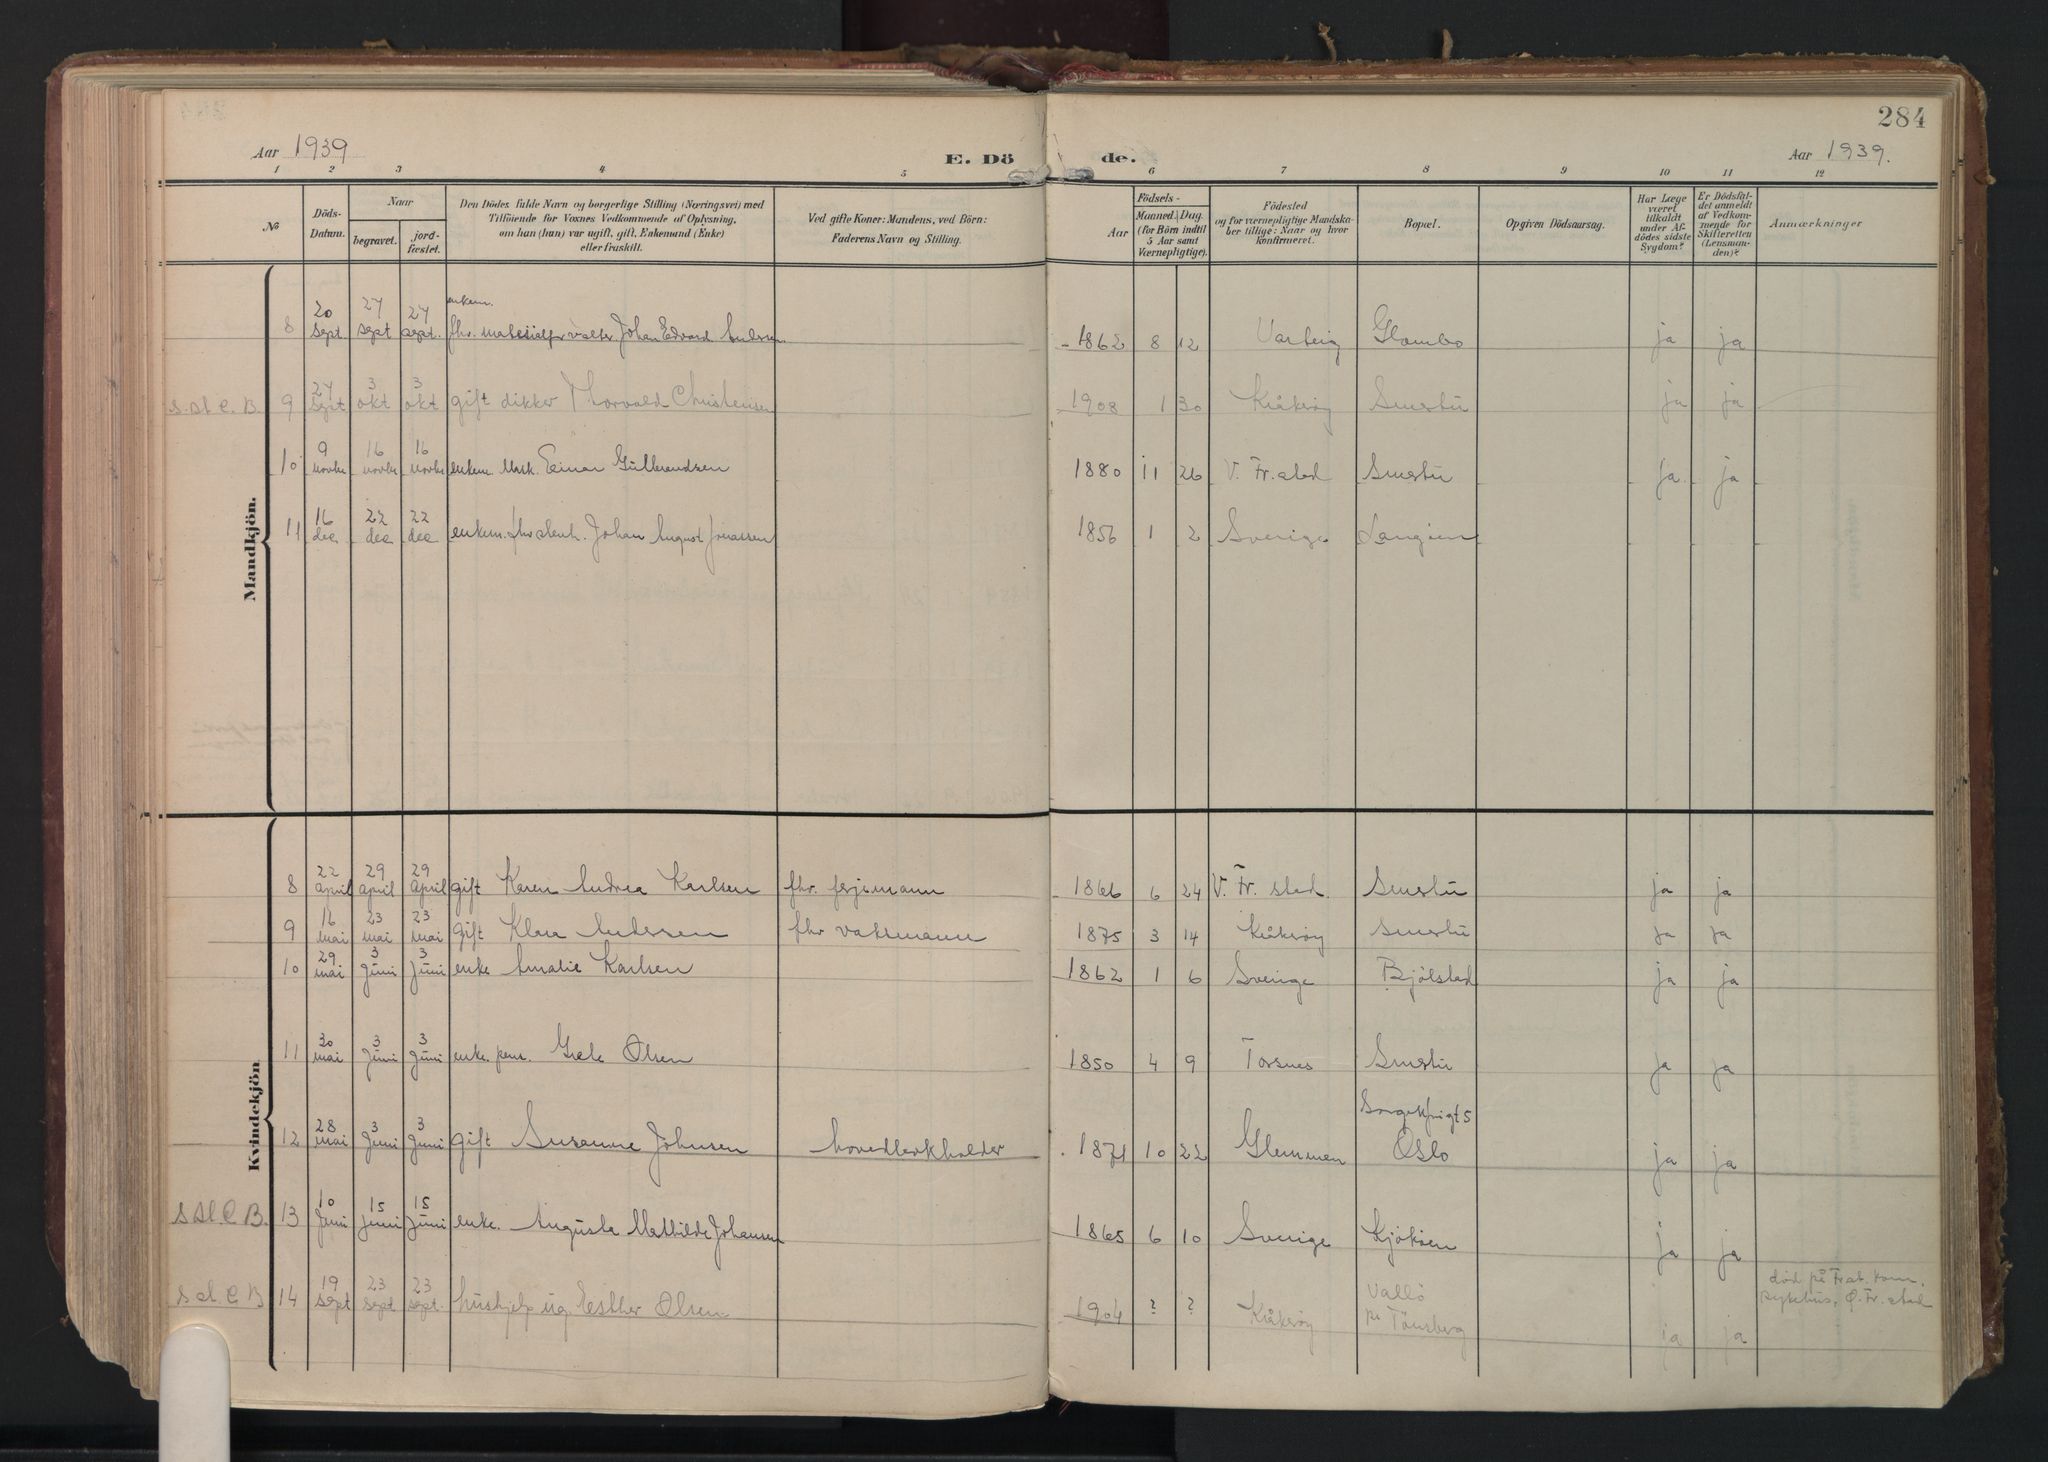 284
Aar 1939
E. Dö de.
Aar 1939.
1 2 3 4 5 6 7 8 9 10 11 12
№
Döds-Datum.
Naar
begravet.
jord-fæstet.
Den Dödes fulde Navn og borgerlige Stilling (Næringsvei) med
Tilföiende for Voxnes Vedkommende af Oplysning,
om han (hun) var ugift, gift, Enkemand (Enke)
eller fraskilt.
Ved gifte Koner: Mandens, ved Börn:
Faderens Navn og Stilling.
Födsels-
Aar
Maaned. Dag.
(for Börn indtil
5 Aar samt
Værnepligtige).
Födested
og for værnepligtige Mandska-
ber tillige: Naar og hvor
konfirmeret.
Bopæl.
Opgiven Dödsaarsag.
Har Læge
været
tilkaldt
under Af-
dödes sidste
Sygdom?
Er Dödsfal-
det anmeldt
af Vedkom-
mende for
Skifteretten
(Lensman-
den)?
Anmærkninger
Mandkjön.
enkem.
8 20 sept 27 sept 27 sept. fhv. materialforvalter Johan Edvard Andersen 1862 8 12 Varteig Glombo ja ja
9 27 sept 3 okt 3 okt gift dikker Thorvald Christensen 1908 1 30 Kråkerøy Smertu ja ja
10 9 novbr 16 novbr 16 novbr enkem. Mask. Einar Gulbrandsen 1880 11 26 V. Fr.stad Smertu ja ja
11 16 dec 22 dec 22 dec enkem. fhv stenh. Johan August Jonassen 1856 1 2 Sverige Langøen
Kvindekjön
8 22 April 29 April 29 April gift Karen Andrea Karlsen fhv. ferjemann 1866 6 24 V. Fr. stad. Smertu ja ja
9 16 mai 23 mai 23 mai gift Klara Andersen fhv vaktmann 1875 3 14 Kråkerøy Smertu ja ja
10 29 mai 3 Juni 3 Juni enke Amalie Karlsen 1862 1 6 Sverige Bjølstad ja ja
11 30 mai 3 Juni 3 Juni enke. pens. Olsen 1850 4 9 Torsnes Smertu ja ja
12 28 mai 3 Juni 3 Juni gift Susanne Johnsen 1871 10 22 Glemmen Oslo ja ja
13 10 Juni 15 Juni 15 Juni enke. Augusta Mathilde Johansen 1865 6 10 Sverige Kjøkøen ja ja
14 19 sept 23 sept 23 sept. hushjelp ug Esther Olsen 1904 ? ? Kråkerøy Vallö pr Tönsberg ja ja død på Fr.st. kom. sykehus, Ø. Fr. stad